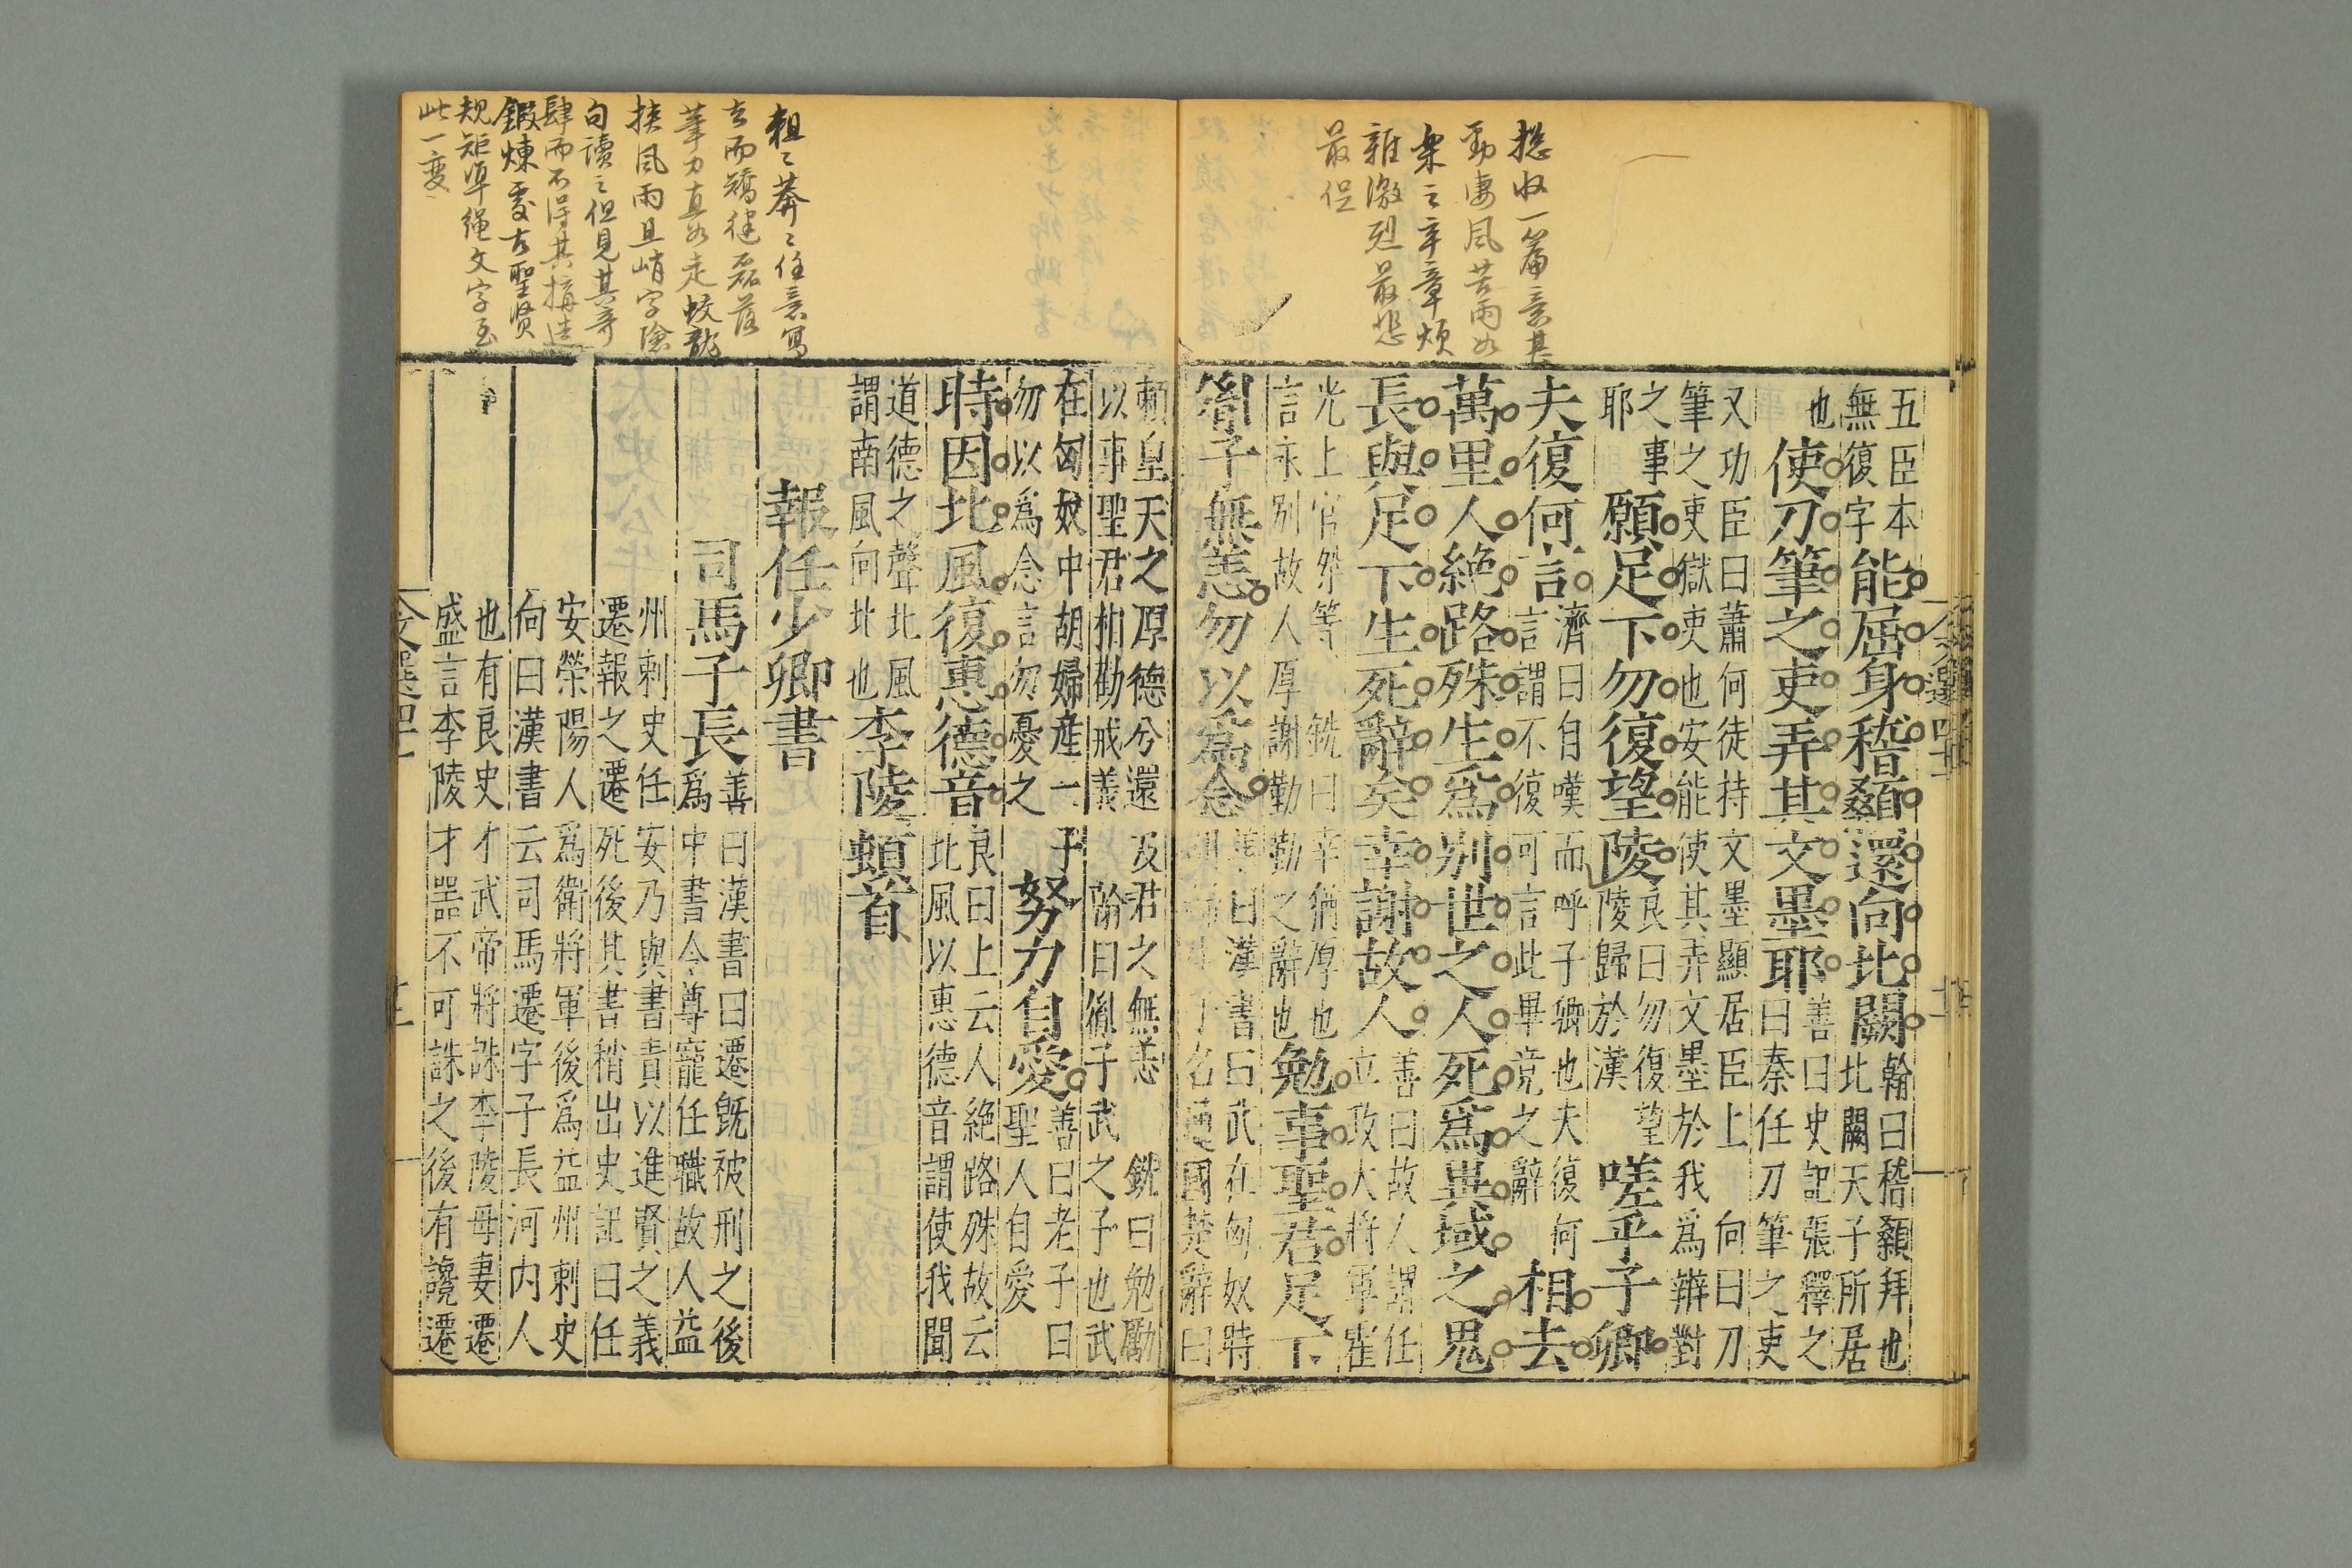 揔收一篇意甚
勁凄風苦雨如
乗〻辛章煩
雜激烈最悲
最促
五臣本
無復字
能屈身稽顙還向北闕
翰曰稽顙拜也
北闕天子所居
也
使刀筆之吏弄其文墨耶
善曰史記張釋之
曰秦任刀筆之吏
又功臣曰蕭何徒持文墨顯居臣上 向曰刀
筆之吏獄吏也安能使其弄文墨於我爲辯對
之事
耶
願足下勿復望陵
良曰勿復望
陵歸於漢
嗟乎子卿
夫復何言
濟曰自嘆而呼子卿也夫復何
言謂不復可言此畢竟之辭
相去
萬里人絶路殊生爲別世之人死爲異域之鬼
長與足下生死辭矣幸謝故人
善曰故人謂任
立政大將軍霍
光上官桀等 銑曰幸猶厚也
言永別故人厚謝勤勤之辭也
勉事聖君足下
胤子無恙勿以爲念
善曰漢書曰武在匈奴時
國楚辭曰
賴皇天之厚德兮還及君之無恙 銑曰勉勵
以事聖君相勸戒義 翰曰胤子武之子也武
在匈奴中胡婦産一子
勿以爲念言勿憂之
努力自愛
善曰老子曰
聖人自愛
時因北風復惠德音
良曰上云人絶路殊故云
北風以惠德音謂使我聞
道德之聲北風
謂南風向北也
李陵頓首
報任少卿書
司馬子長
善曰漢書曰遷旣被刑之後
爲中書令尊寵任職故人益
州刺史任安乃與書責以進賢之義
遷報之遷死後其書稍出史記曰任
安滎陽人爲衛將軍後爲益州刺史
向曰漢書云司馬遷字子長河内人
也有良史才武帝將誅李陵母妻遷
盛言李陵才器不可誅之後有讒遷
文選四十一
粗〻莽〻任意寫
去而矯健磊落
筆力真如走蛟龍
挾風雨且峭字險
句讀之但見其奇
肆而不得其搆造
鍜煉處古聖贤
規矩凖绳文字至
此一变